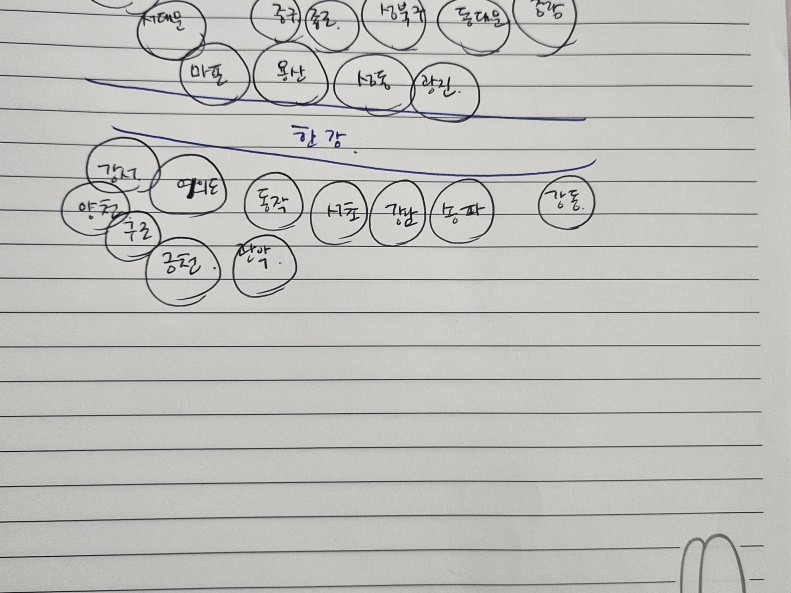 서대문 중구 종로. 성북구 동대문 중랑
마포 용산 성동 광진.
한강.
강서. 여의도 동작 서초 강남 송파 강동.
양천 구로
금천. 관악.